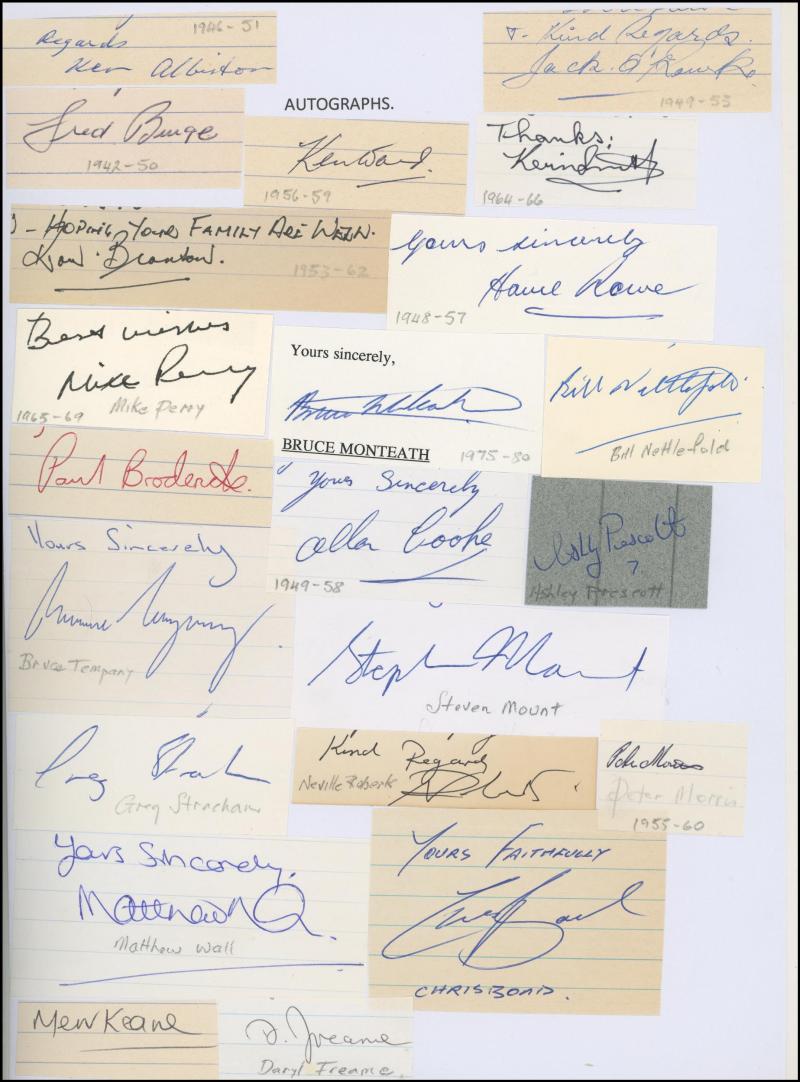 1946-51
Regards
Ken Albiston
T. Kind Regards.
Jack O'Rourke
1949-53
AUTOGRAPHS.
Fred Binge
1942-50
Ken Ward.
1956-59
Thanks:
Kevin Smith
1964-66
- HOPING YOUR FAMILY ARE WELL.
Ron Branton.
1953-62
Yours sincerely
Havel Rowe
1948-57
Best wishes
Mike Perry
1965-69
Mike Perry
Yours sincerely,
Bruce Monteath
BRUCE MONTEATH
1975-80
Bill Nettlefold
Bill Nettlefold
Paul Broderick.
Yours Sincerely
Allan Cooke
1949-58
Ashley Prescott
7
Ashley Prescott
Yours Sincerely
Bruce Tempany
Bruce Tempany
Stephen Mount
Steven Mount
Greg Strachan
Greg Strachan
Kind Regards
Neville Roberts
Peter Morris
Peter Morris
1955-60
Yours Sincerely,
Matthew Wall
YOURS FAITHFULLY
Chris Bond
CHRIS BOND.
Merv Keane
D. Freame
Daryl Freame